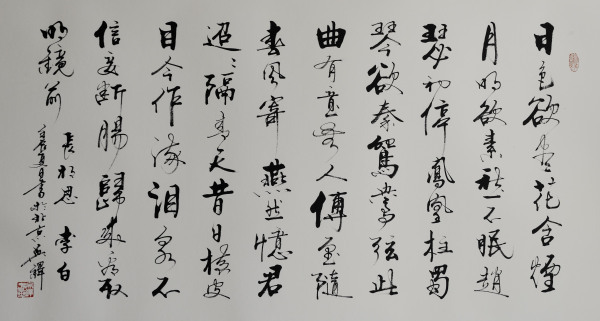 日色欲尽花含煙
月明欲素愁不眠趙
瑟初停鳳凰柱蜀
琴欲奏鴛鴦弦此
曲有意無人傳願隨
春風寄燕然憶君
迢々隔青天昔日横波
目今作流泪泉不
信妾断腸歸來看取
明鏡前
長相思 李白
夏日書於北京